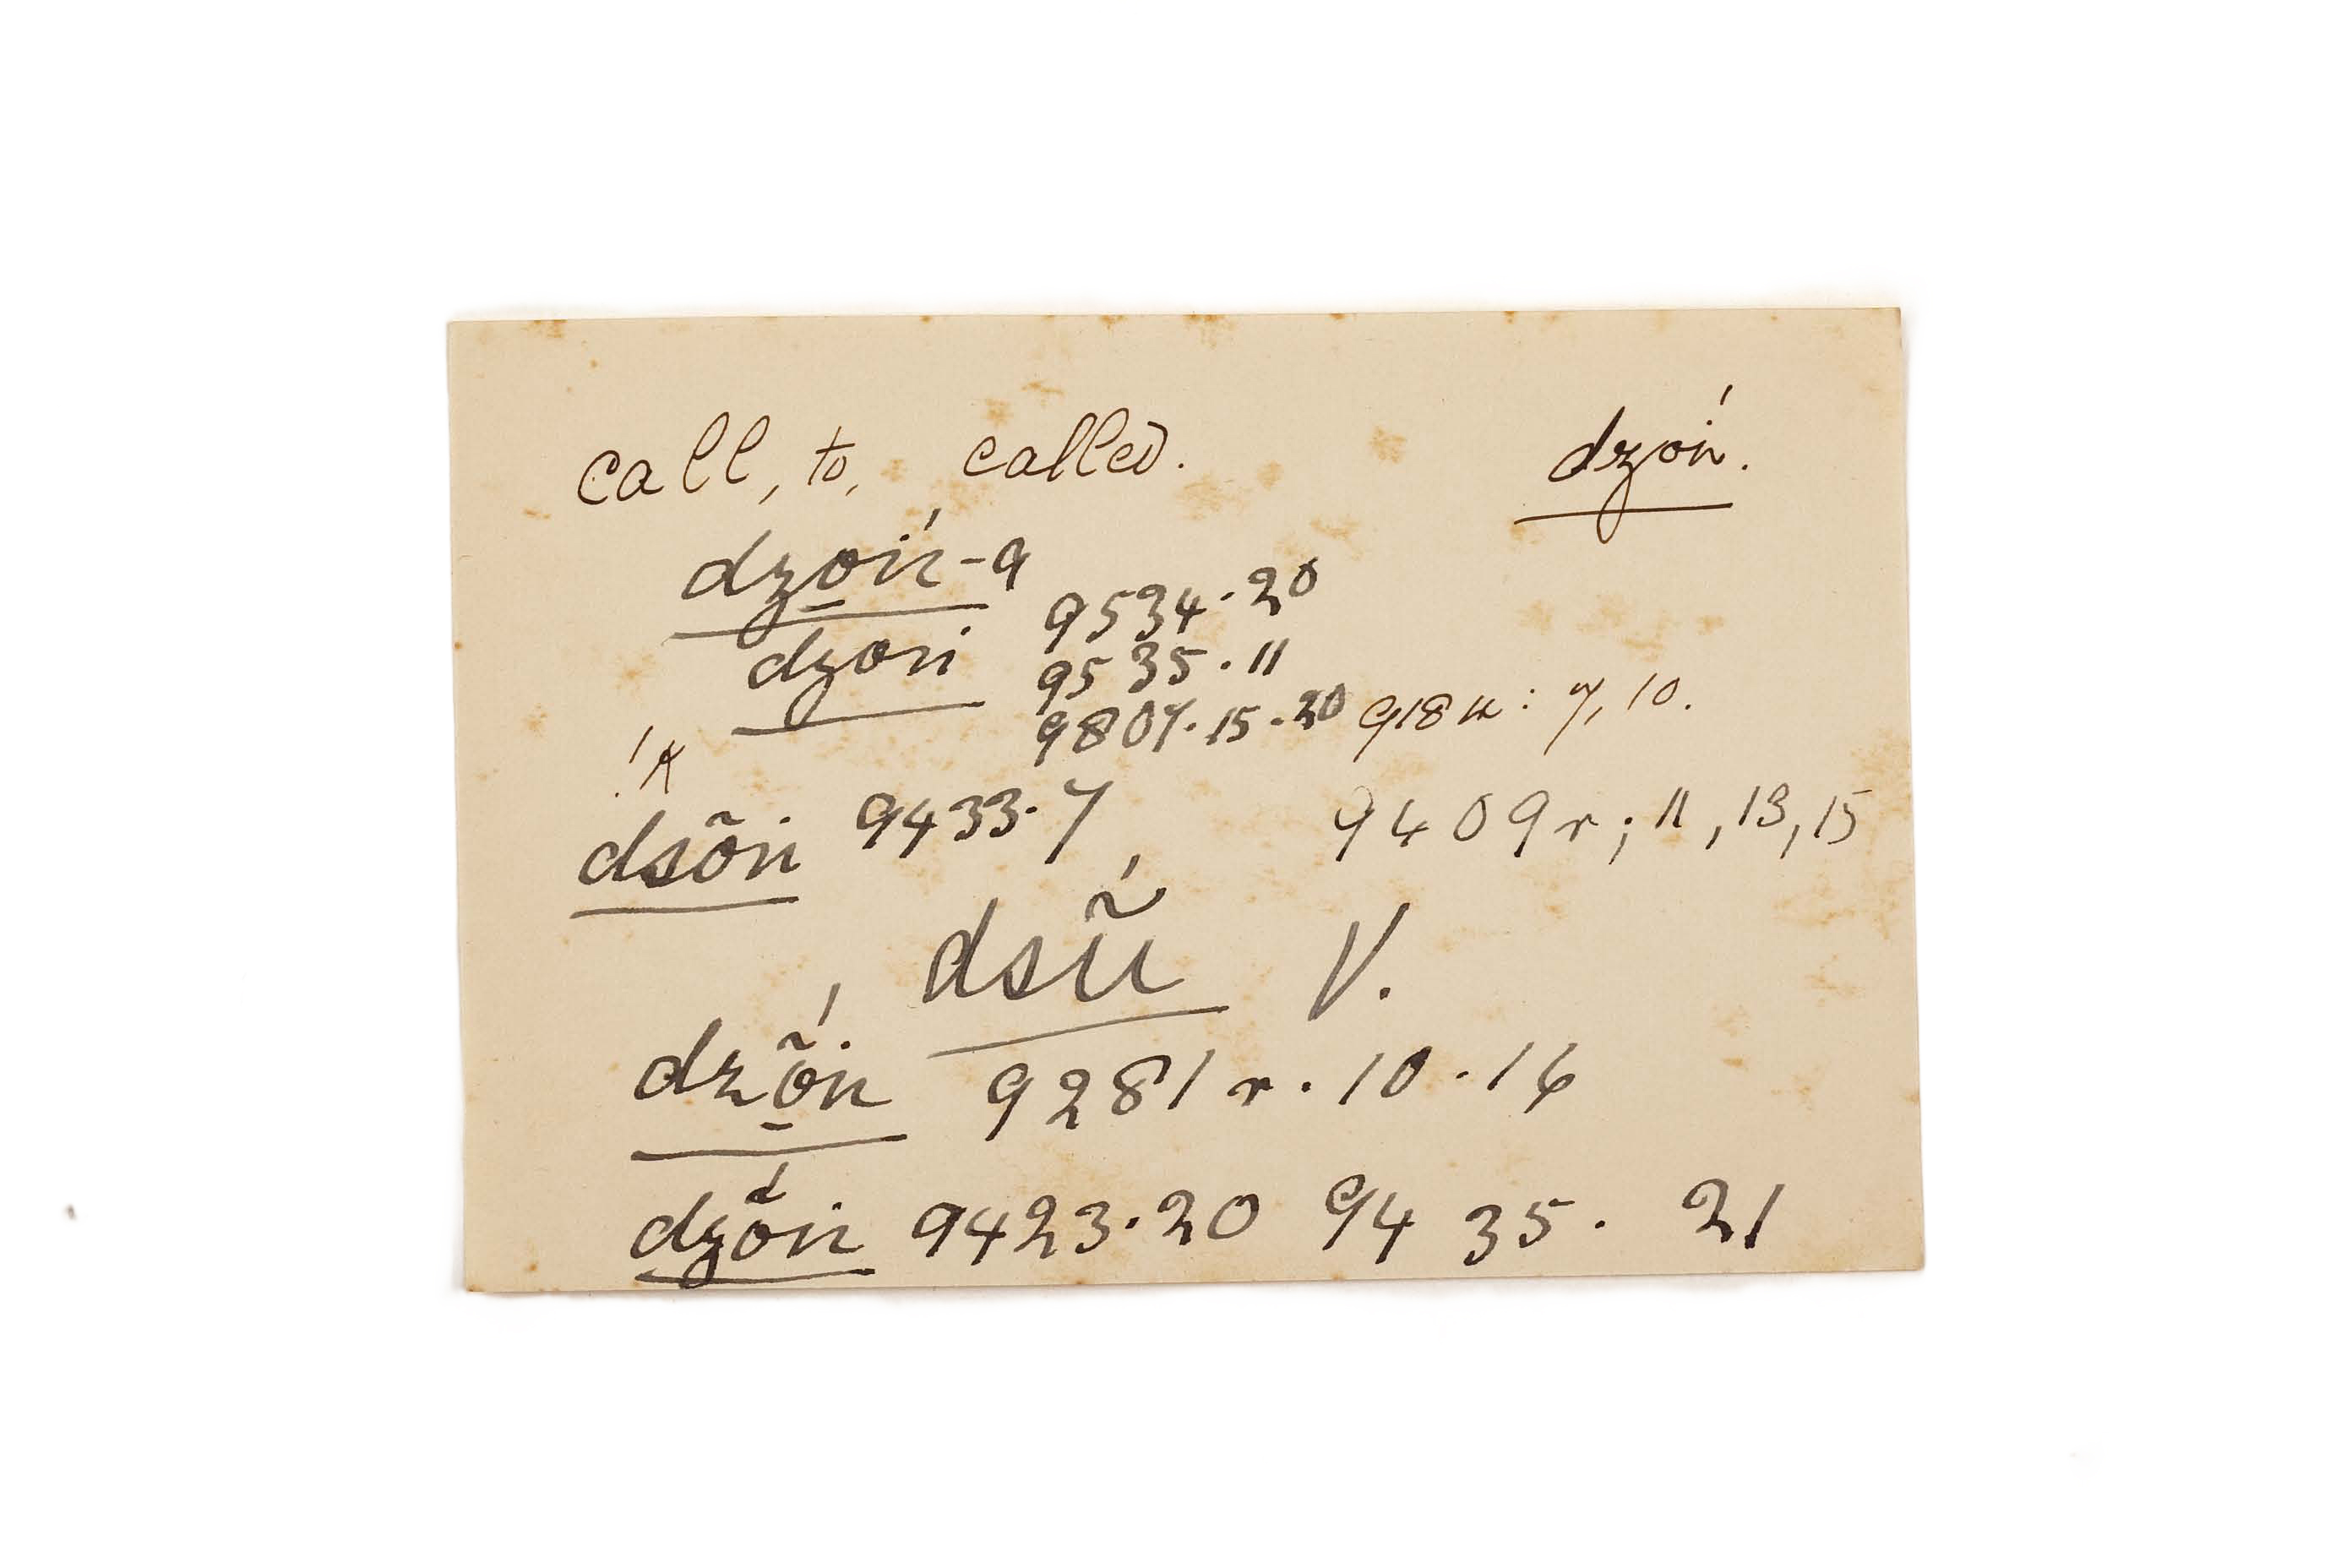 call, to, called. dzoṅ́.
dzo̱ṅ́-a 9534.20
dzoṅ 9535.11
9807.15.20 918
: 7, 10.
dsõṅ 9433.7 9409r; 11, 13, 15
dsũ V.
dzõ̱ṅ 9281r.10.16
dzoṅ 9423.20 9435. 21